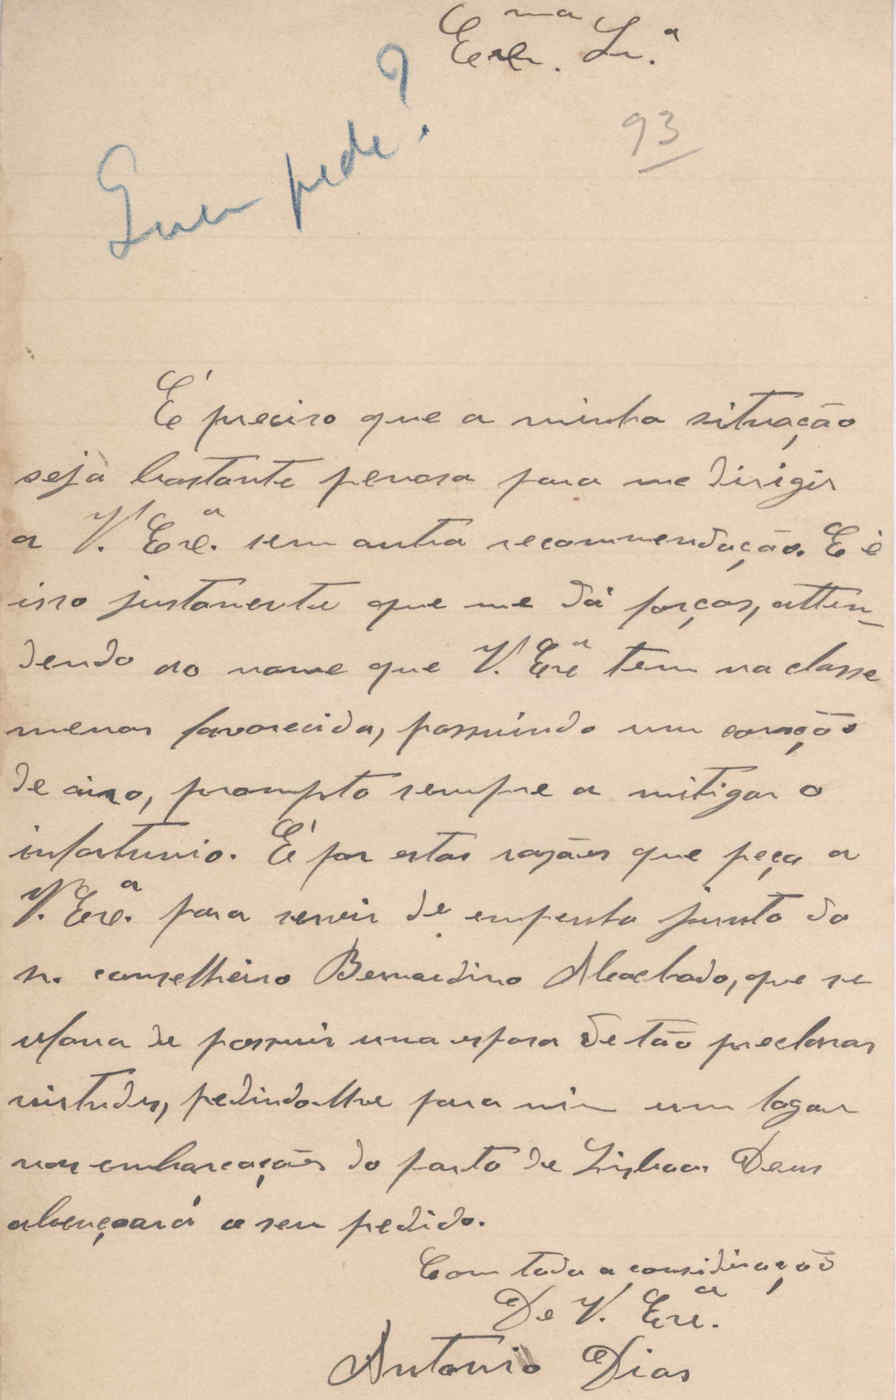 Exc.ma Sr.a
93
Quem pede?
É preciso que a minha situação
seja bastante penosa para me dirigir
a V. Exc.a sem outra recommendação. E é
isso justamente que me dá forças, atten-
dendo ao nome que V. Exc.a tem na classe
menos favorecida, possuindo um coração
de oiro, prompto sempre a mitigar o
infortunio. É por estas razões que peço a
V. Exc.a para servir de empenho junto do
sr. conselheiro Bernardino Machado, que se
ufana de possuir uma esposa de tão preclaras
virtudes, pedindo-lhe para mim um logar
nas embarcações do porto de Lisboa. Deus
abençoará o seu pedido.
Com toda a consideração
De V. Exc.a
Antonio Dias